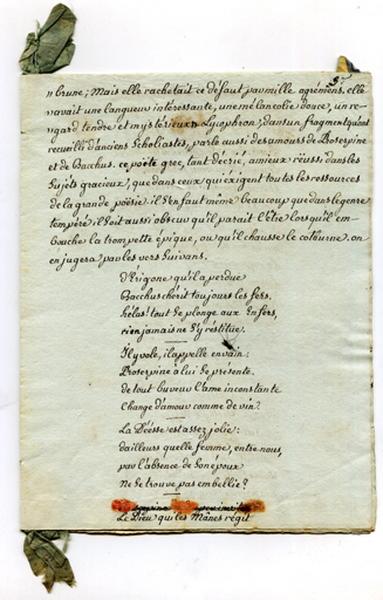 5.
" brune; Mais elle rachetait ce défaut par mille agrémens. elle
"avait une langueur intéressante, une mélancolie douce, un re-
"gard tendre et mystérieux" Lycophron, dans un fragment qu'ont
recueilli d'anciens Scholiastes, parle aussi des amours de Proserpine
et de Bacchus. ce poëte grec, tant décrié, a mieux réussi dans les
Sujets gracieux, que dans ceux qui éxigent toutes les ressources
de la grande poësie. il S'en faut même beaucoup que dans le genre
tempéré il Soit aussi obscur qu'il parait l'être lorsqu'il em-
bouche la trompette épique, ou qu'il chausse le cothurne. on
en jugera par les vers Suivans.
d'Erigone qu'il a perdue
Bacchus chérit toujours les fers.
hélas! tout Se plonge aux Enfers,
rien jamais ne S'y restitue.
Il y vole, il appelle en vain:
Proserpine à lui Se présente.
de tout buveur l'ame inconstante
Change d'amour comme de vin.
La Déesse est assez jolie:
d'ailleurs quelle femme, entre nous,
par l'absence de Son époux
Ne Se trouve pas embellie?
Le Dieu qui les Mânes régit